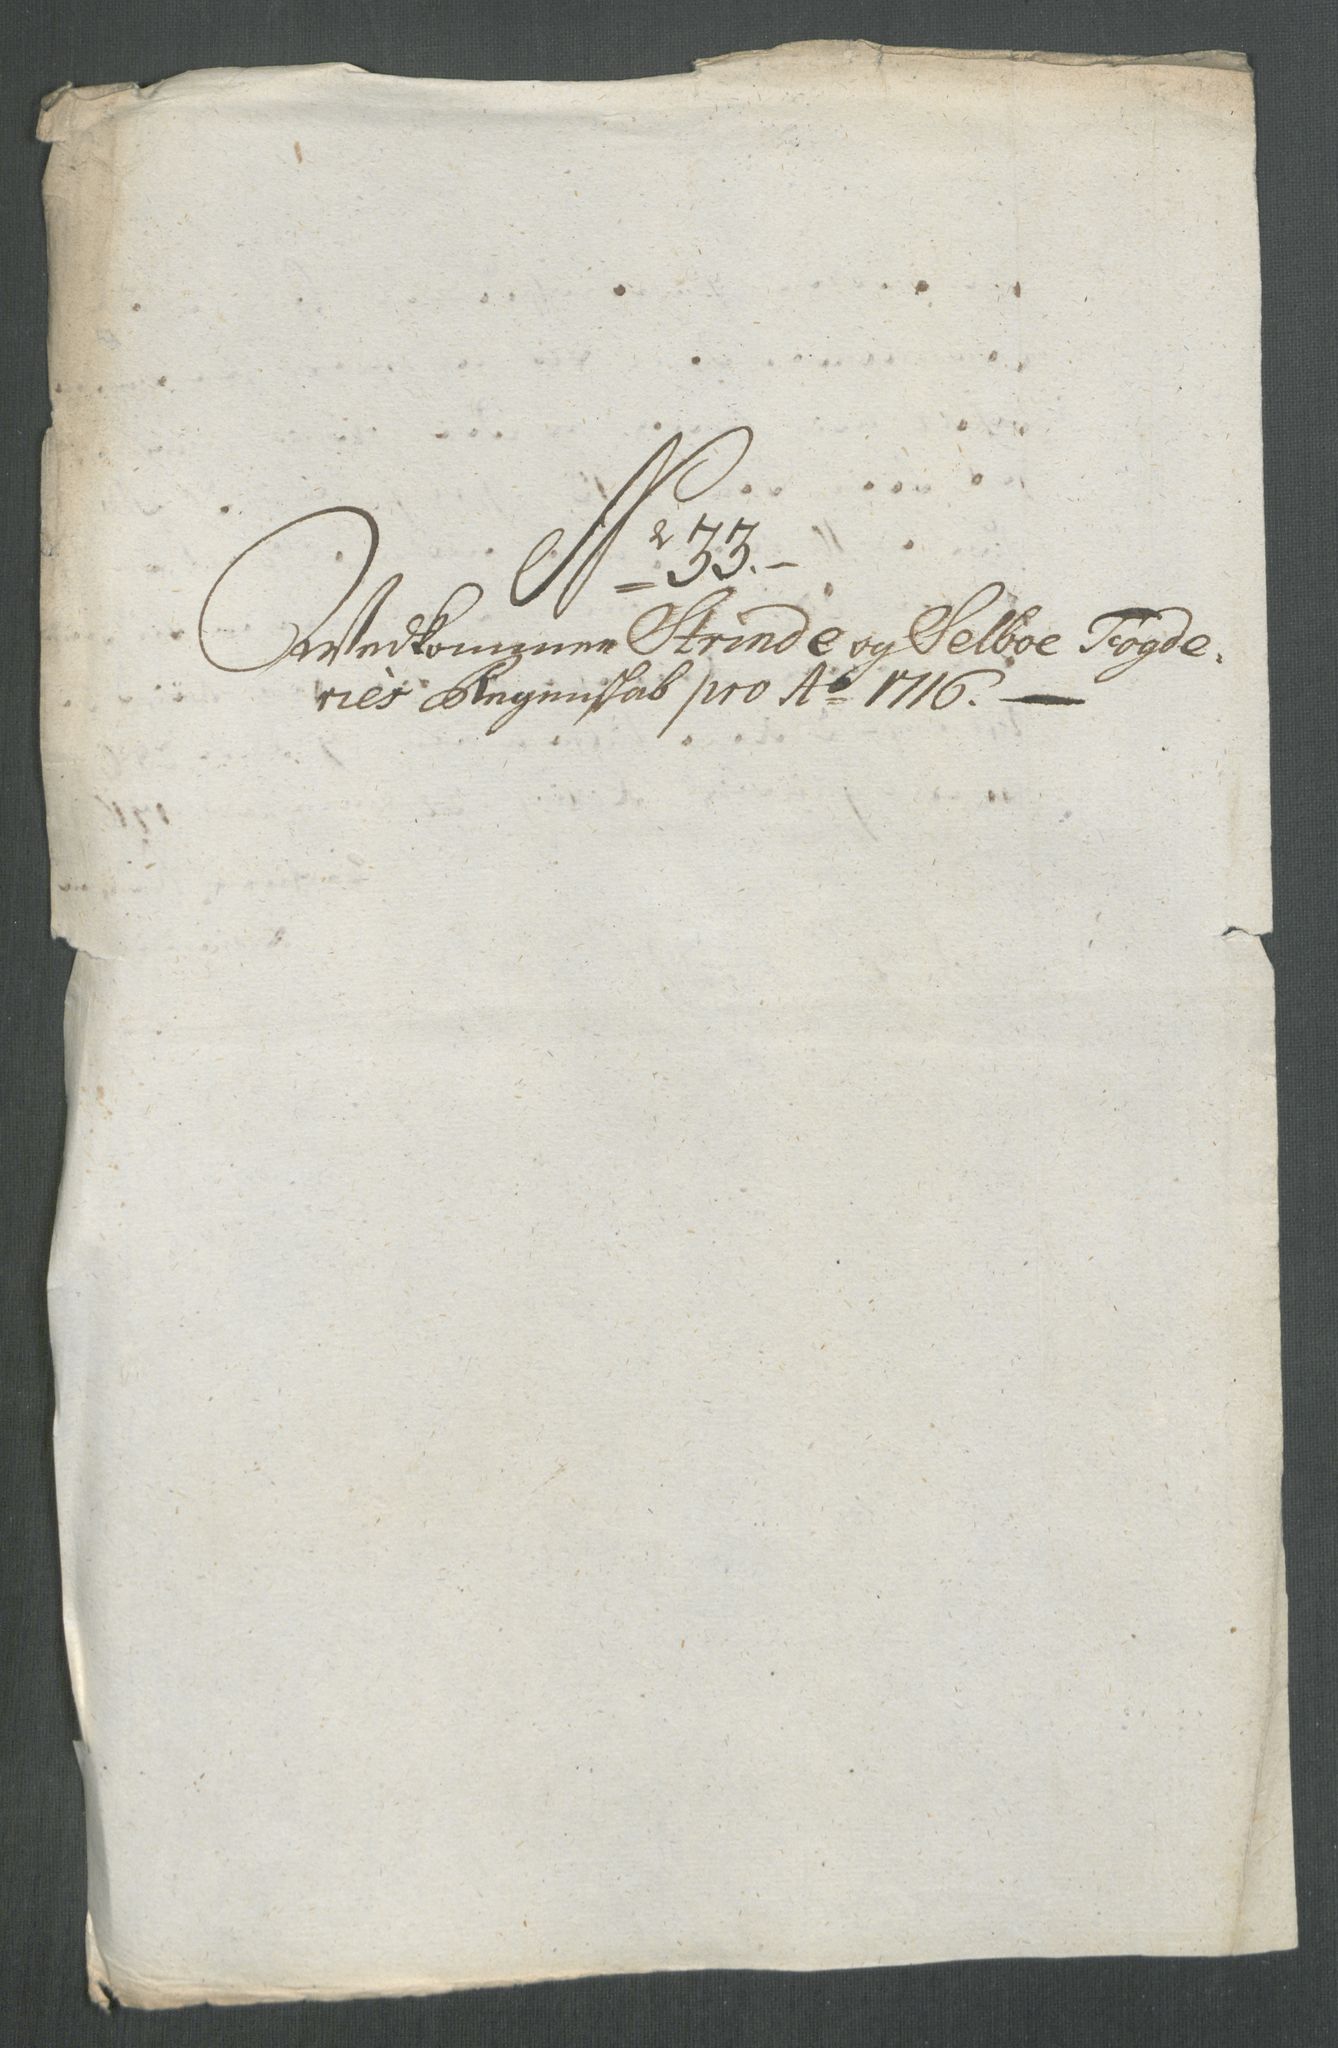 No 33.
Vedkommer Strinde og Selboe Fogde,
riès Regenskab pro Ao 1716.